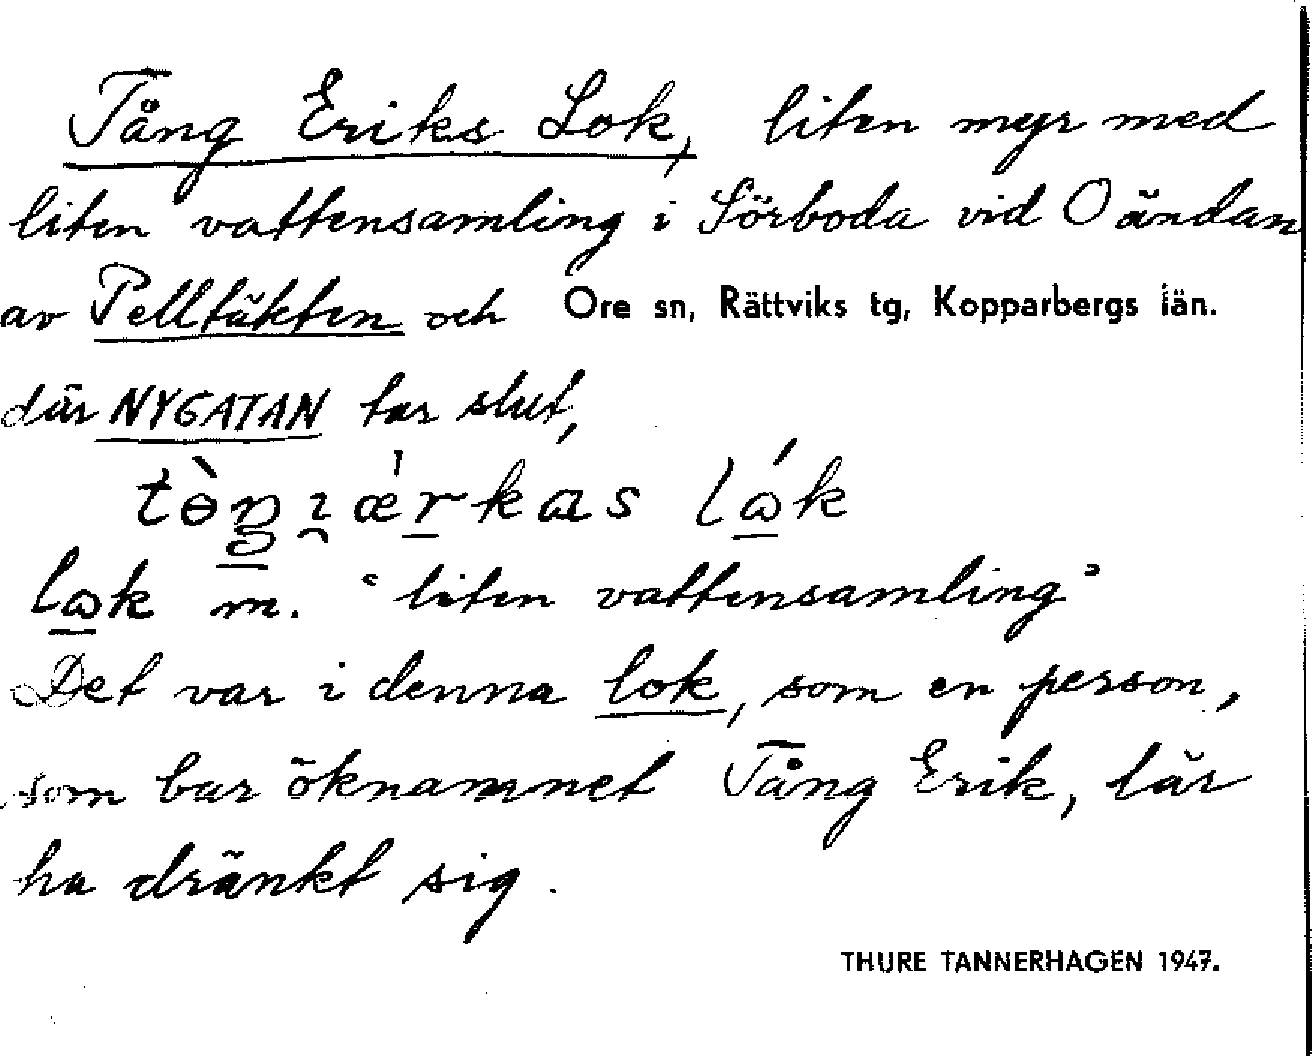 Tång Eriks Lok, liten myr med
liten vattensamling i Sörboda vid O ändan
av Pelltäkten och Ore sn, Rättviks tg, Kopparbergs län.
där NYGATAN tar slut,
lok m. "liten vattensamling"
Det var i denna lok, som en person,
som bar öknamnet Tång Erik, lär
ha dränkt sig.
THURE TANNERHAGEN 1947.